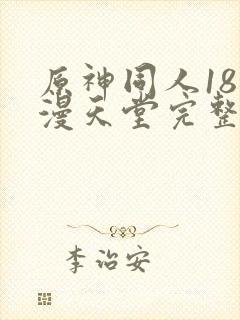 原神同人18
漫天堂完整
李治安